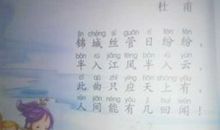 杜 甫
jǐn chéng sī guǎn rì fēn fēn
锦城丝管日纷纷，
bàn rù jiāng fēng bàn rù yún
半入江风半入云。
cǐ qǔ zhǐ yīng tiān shàng yǒu
此曲只应天上有，
rén jiān néng yǒu jǐ huí wén
人间能有几回闻！